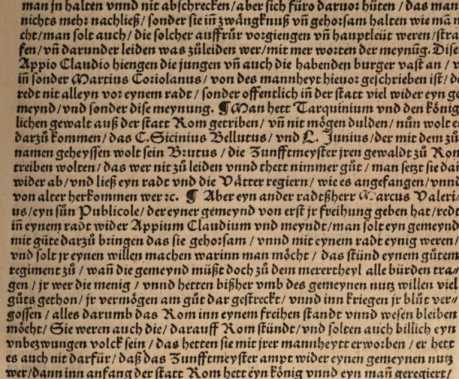 man jn halten vnnd nit abschrecken/aber sich füro daruor hüten/das man
nichts mehr nachließ/sonder sie in zwāngknuß vn̄ gehorsam halten wie man
cht/man solt auch/die solcher auffrür vorgiengen vn̄ hauptleüt weren/stra
fen/vn̄ darunder leiden was zůleiden wer/mit mer worten der meynūg. Dise
Appio Claudio hiengen die jungen vn̄ auch die habenden burger vast an/
in̄ sonder Martius Coriolanus/von des mannheyt hieuor geschrieben ist/
redt nit alleyn vor eynem radt/sonder offentlich in̄ der statt viel wider eyn ge
meynd/vnd sonder dise meynung. ¶ Man hett Tarquinium vnd den künig
lichen gewalt auß der statt Rom getriben/vn̄ nit mögen dulden/nūn wolt e
darzů kommen/das C. Sicinius Bellutus/vnd L. Junius/der mit dem zů
namen geheyssen wolt sein Brutus/die Zunfftmeyster jren gewaldt zů Rom
treiben wolten/das wer nit zů leiden vnnd thett nimmer gůt/man setzt sie dai
wider ab/vnd ließ eyn radt vnd die Vätter regiern/wie es angefangen/vnn
von alter herkommen wer ꝛc. ¶ Aber eyn ander radtßherr Marcus Valeri
us/eyn sün Publicole/der eyner gemeynd von erst jr freihung geben hat/redt
in̄ eynem radt wider Appium Claudium vnd meyndt/man solt eyn gemeynd
mit güte darzů bringen das sie gehorsam/vnnd mit eynem radt eynig weren/
vnd solt jr eynen willen machen warinn man möcht/das stünd eynem gůtem
regiment zů/wan̄ die gemeynd müßt doch zů dem merertheyl alle bürden tra
gen/jr wer die menig/vnnd hetten bißher vmb des gemeynen nutz willen viel
gůts gethon/jr vermögen am gůt dar gestreckt/vnnd inn kriegen jr blůt ver
gossen/alles darumb das Rom inn eynem freihen standt vnnd wesen bleiben
möcht/Sie weren auch die/darauff Rom stündt/vnd solten auch billich eyn
vnbezwungen volck sein/das hetten sie mit jrer mannheytt erworben/er hett
es auch nit darfür/daß das Zunfftmeyster ampt wider eynen gemeynen nutz
wer/dann inn anfang der statt Rom hett eyn künig vnnd eyn man̄ geregiert/